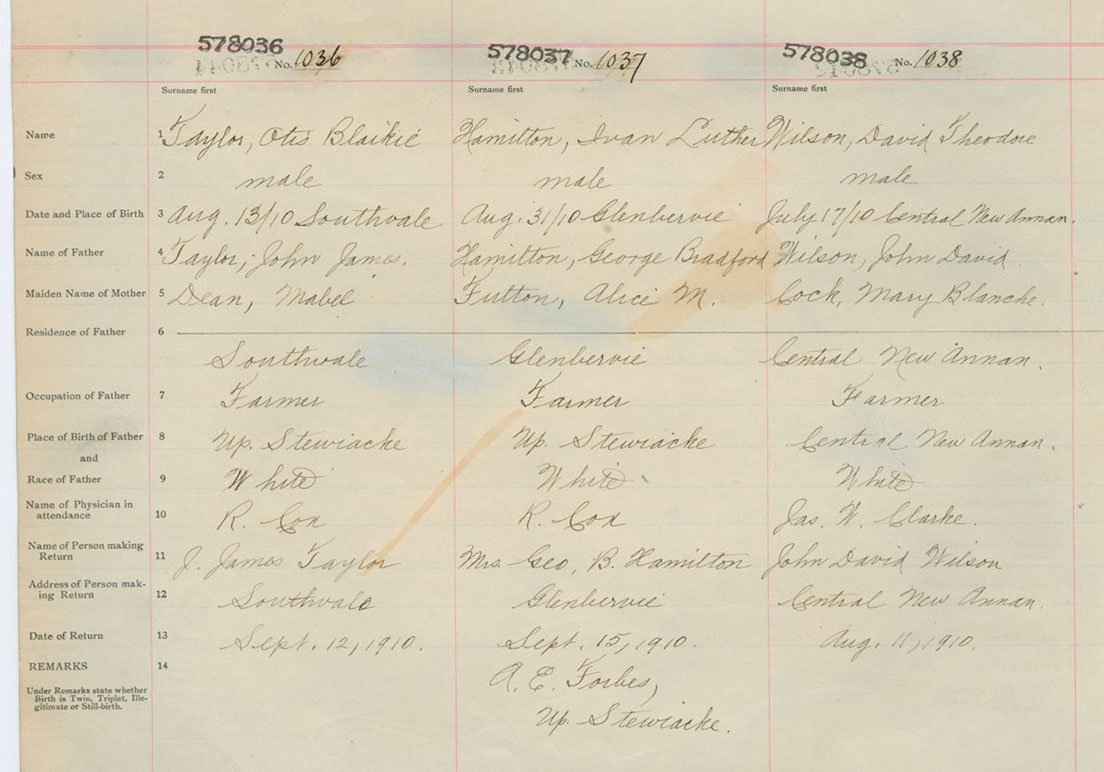 578036 578037 578038
No. 1036 No. 1037 No. 1038
Surname first Surname first Surname first
Name 1 Taylor, Otis Blaikie Hamilton, Ivan Luther Wilson, David Theodore
Sex 2 male male male
Date and Place of Birth 3 Aug. 13/10 Southvale Aug. 31/10 Glenbervie July 17/10 Central New Annan.
Name of Father 4 Taylor, John James. Hamilton, George Bradford Wilson, John David
Maiden Name of Mother 5 Dean, Mabel Fulton, Alice M. Cock, Mary Blanche.
Residence of Father 6
Southvale Glenbervie Central New Annan.
Occupation of Father 7 Farmer Farmer Farmer
Place of Birth of Father 8 Up. Stewiacke Up. Stewiacke Central New Annan.
and
Race of Father 9 White White White
Name of Physician in
attendance 10 R. Cox R. Cox Jas. W. Clarke.
Name of Person making
Return 11 J. James Taylor Mrs. Geo. B. Hamilton John David Wilson
Address of Person mak-
ing Return 12 Southvale Glenbervie Central New Annan.
Date of Return 13 Sept. 12, 1910. Sept. 15, 1910. Aug. 11, 1910.
REMARKS 14
A. E. Forbes,
Under Remarks state whether
Birth is Twin, Triplet, Ille-
gitimate or Still-birth.
Up. Stewiacke.